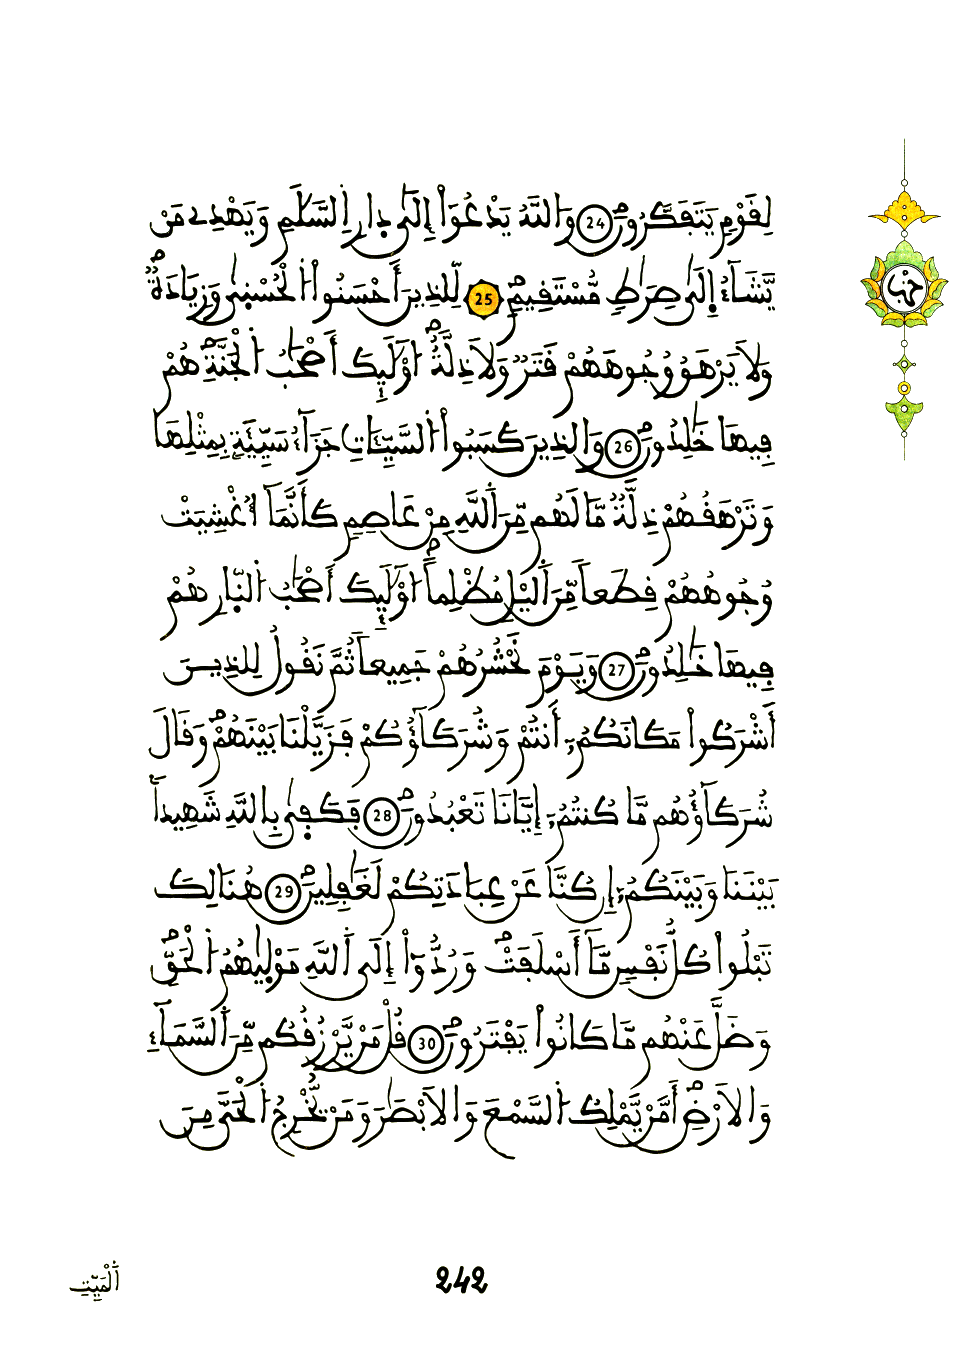 لِقَوْمٍ يَتَفَكَّرُونَ 24 وَاللَّهُ يَدْعُوا إِلَىٰ دِارِ اِ۬لسَّلَٰمِ وَيَهْدِے مَنْ
يَّشَآءُ اِ۪لَىٰ صِرَٰطٖ مُّسْتَقِيمٖ 25 لِّلذِينَ أَحْسَنُواْ اُ۬لْحُسْنَىٰ وَزِيَادَةٞ
وَلَا يَرْهَقُ وُجُوهَهُمْ قَتَرٞ وَلَا ذِلَّةٌ ا۟وْلَٰٓئِكَ أَصْحَٰبُ اُ۬لْجَنَّةِ هُمْ
فِيهَا خَٰلِدُونَ 26 وَالذِينَ كَسَبُواْ اُ۬لسَّيِّـَٔاتِ جَزَآءُ سَيِّئَةِۢ بِمِثْلِهَا
وَتَرْهَقُهُمْ ذِلَّةٞ مَّا لَهُم مِّنَ اَ۬للَّهِ مِنْ عَاصِمٖ كَأَنَّمَآ أُغْشِيَتْ
وُجُوهُهُمْ قِطَعاٗ مِّنَ اَ۬ليْلِ مُظْلِماً ا۟وْلَٰٓئِكَ أَصْحَٰبُ اُ۬لنّ۪ارِ هُمْ
فِيهَا خَٰلِدُونَ 27 وَيَوْمَ نَحْشُرُهُمْ جَمِيعاٗ ثُمَّ نَقُولُ لِلذِينَ
أَشْرَكُواْ مَكَانَكُمُۥٓ أَنتُمْ وَشُرَكَآؤُكُمْ فَزَيَّلْنَا بَيْنَهُمْ وَقَالَ
شُرَكَآؤُهُم مَّا كُنتُمُۥٓ إِيَّانَا تَعْبُدُونَ 28 فَكَف۪ىٰ بِاللَّهِ شَهِيداَۢ
بَيْنَنَا وَبَيْنَكُمُۥٓ إِن كُنَّا عَنْ عِبَادَتِكُمْ لَغَٰفِلِينَ 29 هُنَالِكَ
تَبْلُواْ كُلُّ نَفْسٖ مَّآ أَسْلَفَتْ وَرُدُّوٓاْ إِلَى اَ۬للَّهِ مَوْل۪يٰهُمُ اُ۬لْحَقِّ
وَضَلَّ عَنْهُم مَّا كَانُواْ يَفْتَرُونَ 30 قُلْ مَنْ يَّرْزُقُكُم مِّنَ اَ۬لسَّمَآءِ
وَالَارْضِ أَمَّنْ يَّمْلِكُ اُ۬لسَّمْعَ وَالَابْصَٰرَ وَمَنْ يُّخْرِجُ اُ۬لْحَيَّ مِنَ
اَ۬لْمَيِّتِ
242
حزب